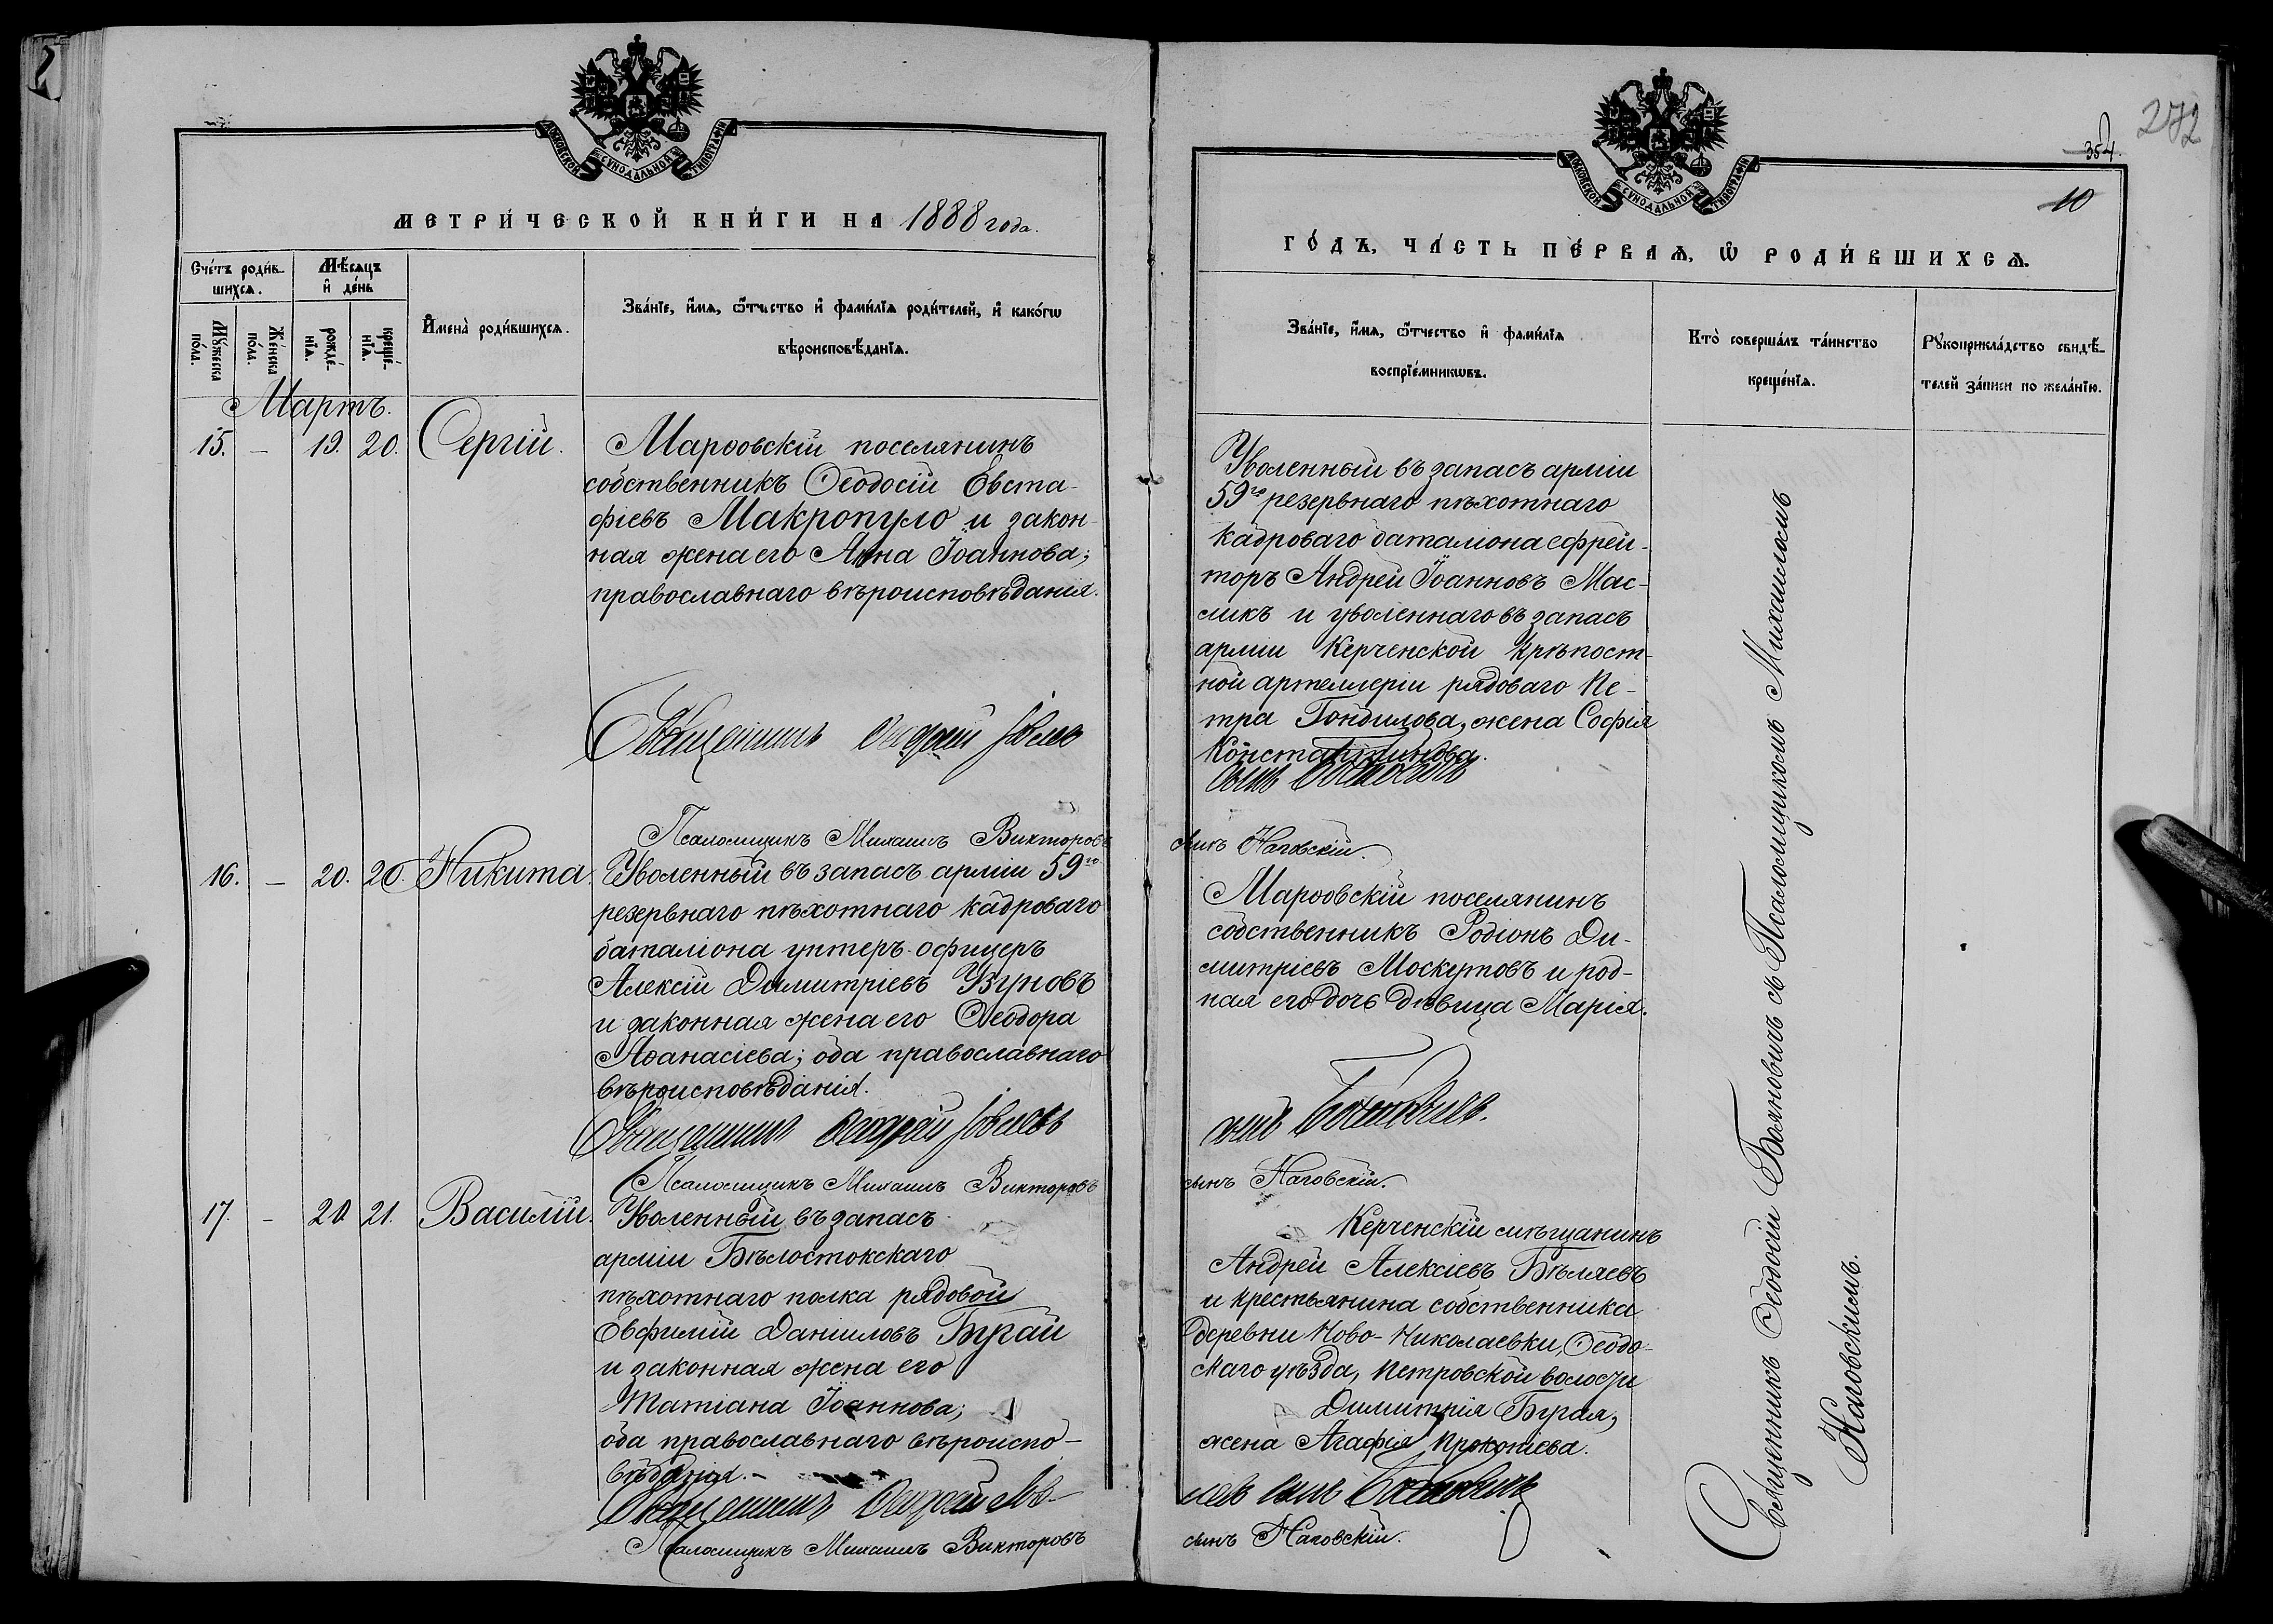 МОСКОВСКОЙ СѴНОДАЛЬНОЙ ТИПОГРАФІИ
МЕТРИ́ЧЕСКОЙ КНИ́ГИ НА 1888 года.
Сче́тъ роди́в-
шихсѧ.
Мѣ́сѧцъ
и҆ де́нь
Мꙋ́жеска
по́ла.
Же́нска
по́ла.
рожде́-
нїѧ.
креще́-
нїѧ.
И҆мена̀ роди́вшихсѧ.
Зва́нїе, и҆́мѧ, ѻ҆́тчество и҆ фами́лїѧ роди́телей, и҆ како́гѡ
вѣроисповѣ́данїѧ.
Мартъ.
15. — 19. 20. Сергій.
Марѳовскій поселянинъ
собственникъ Ѳеодосій Евста-
фіевъ Макропуло и закон-
ная жена его Анна Іоаннова;
православнаго вѣроисповѣданія.
Священникъ
Псаломщикъ Михаилъ Викторовъ
16. — 20. 20. Никита.
Уволенный въ запасъ арміи 59го
резервнаго пѣхотнаго кадроваго
баталіона унтеръ-офицеръ
Алексій Димитріевъ Узуновъ
и законная жена его Ѳеодора
Аѳанасіева; оба православнаго
вѣроисповѣданія.
Священникъ
Псаломщикъ Михаилъ Викторовъ
17. — 20 21. Василій.
Уволенный въ запасъ
арміи Бѣлостокскаго
пѣхотнаго полка рядовой
Евфимій Даніиловъ Бугай
и законная жена его
Татіана Іоаннова;
оба православнаго вѣроиспо-
вѣданія.-
Священникъ
Псаломщикъ Михаилъ Викторовъ
272
354.
10
МОСКОВСКОЙ СѴНОДАЛЬНОЙ ТИПОГРАФІИ
ГО́ДЪ, ЧА́СТЬ ПЕ́РВАѦ, Ѡ҆ РОДИ́ВШИХСѦ.
Зва́нїе, и҆́мѧ, ѻ҆́тчество и҆ фами́лїѧ
воспрїе́мникѡвъ.
Кто̀ соверша́лъ та́инство
креще́нїѧ.
Рꙋкоприкла́дство свидѣ́-
телей за́писи по жела́нїю.
Уволенный въ запасъ арміи
59го резервнаго пѣхотнаго
кадроваго баталіона ефрей-
торъ Андрей Іоанновъ Мас-
ликъ и уволеннаго въ запасъ
арміи Керченской крѣпост-
ной артеллеріи рядоваго Пе-
тра Гондилова, жена Софія
Константинова.
сынъ Наговскій.
Марѳовскій поселянинъ
собственникъ Родіонъ Ди-
митріевъ Москутовъ и род-
ная его дочь дѣвица Марія.
сынъ Наговскій.
Керченскій мѣщанинъ
Андрей Алексіевъ Бѣляевъ
и крестьянина собственника
деревни Ново-Николаевки, Ѳеодо-
скаго уѣзда, Петровской волости
Димитрія Бугая,
жена Агафія Прокопіева.
сынъ Наговскій.
Священникъ Ѳеодосій Бояновичъ съ Псаломщикомъ Михаиломъ
Наговскимъ.